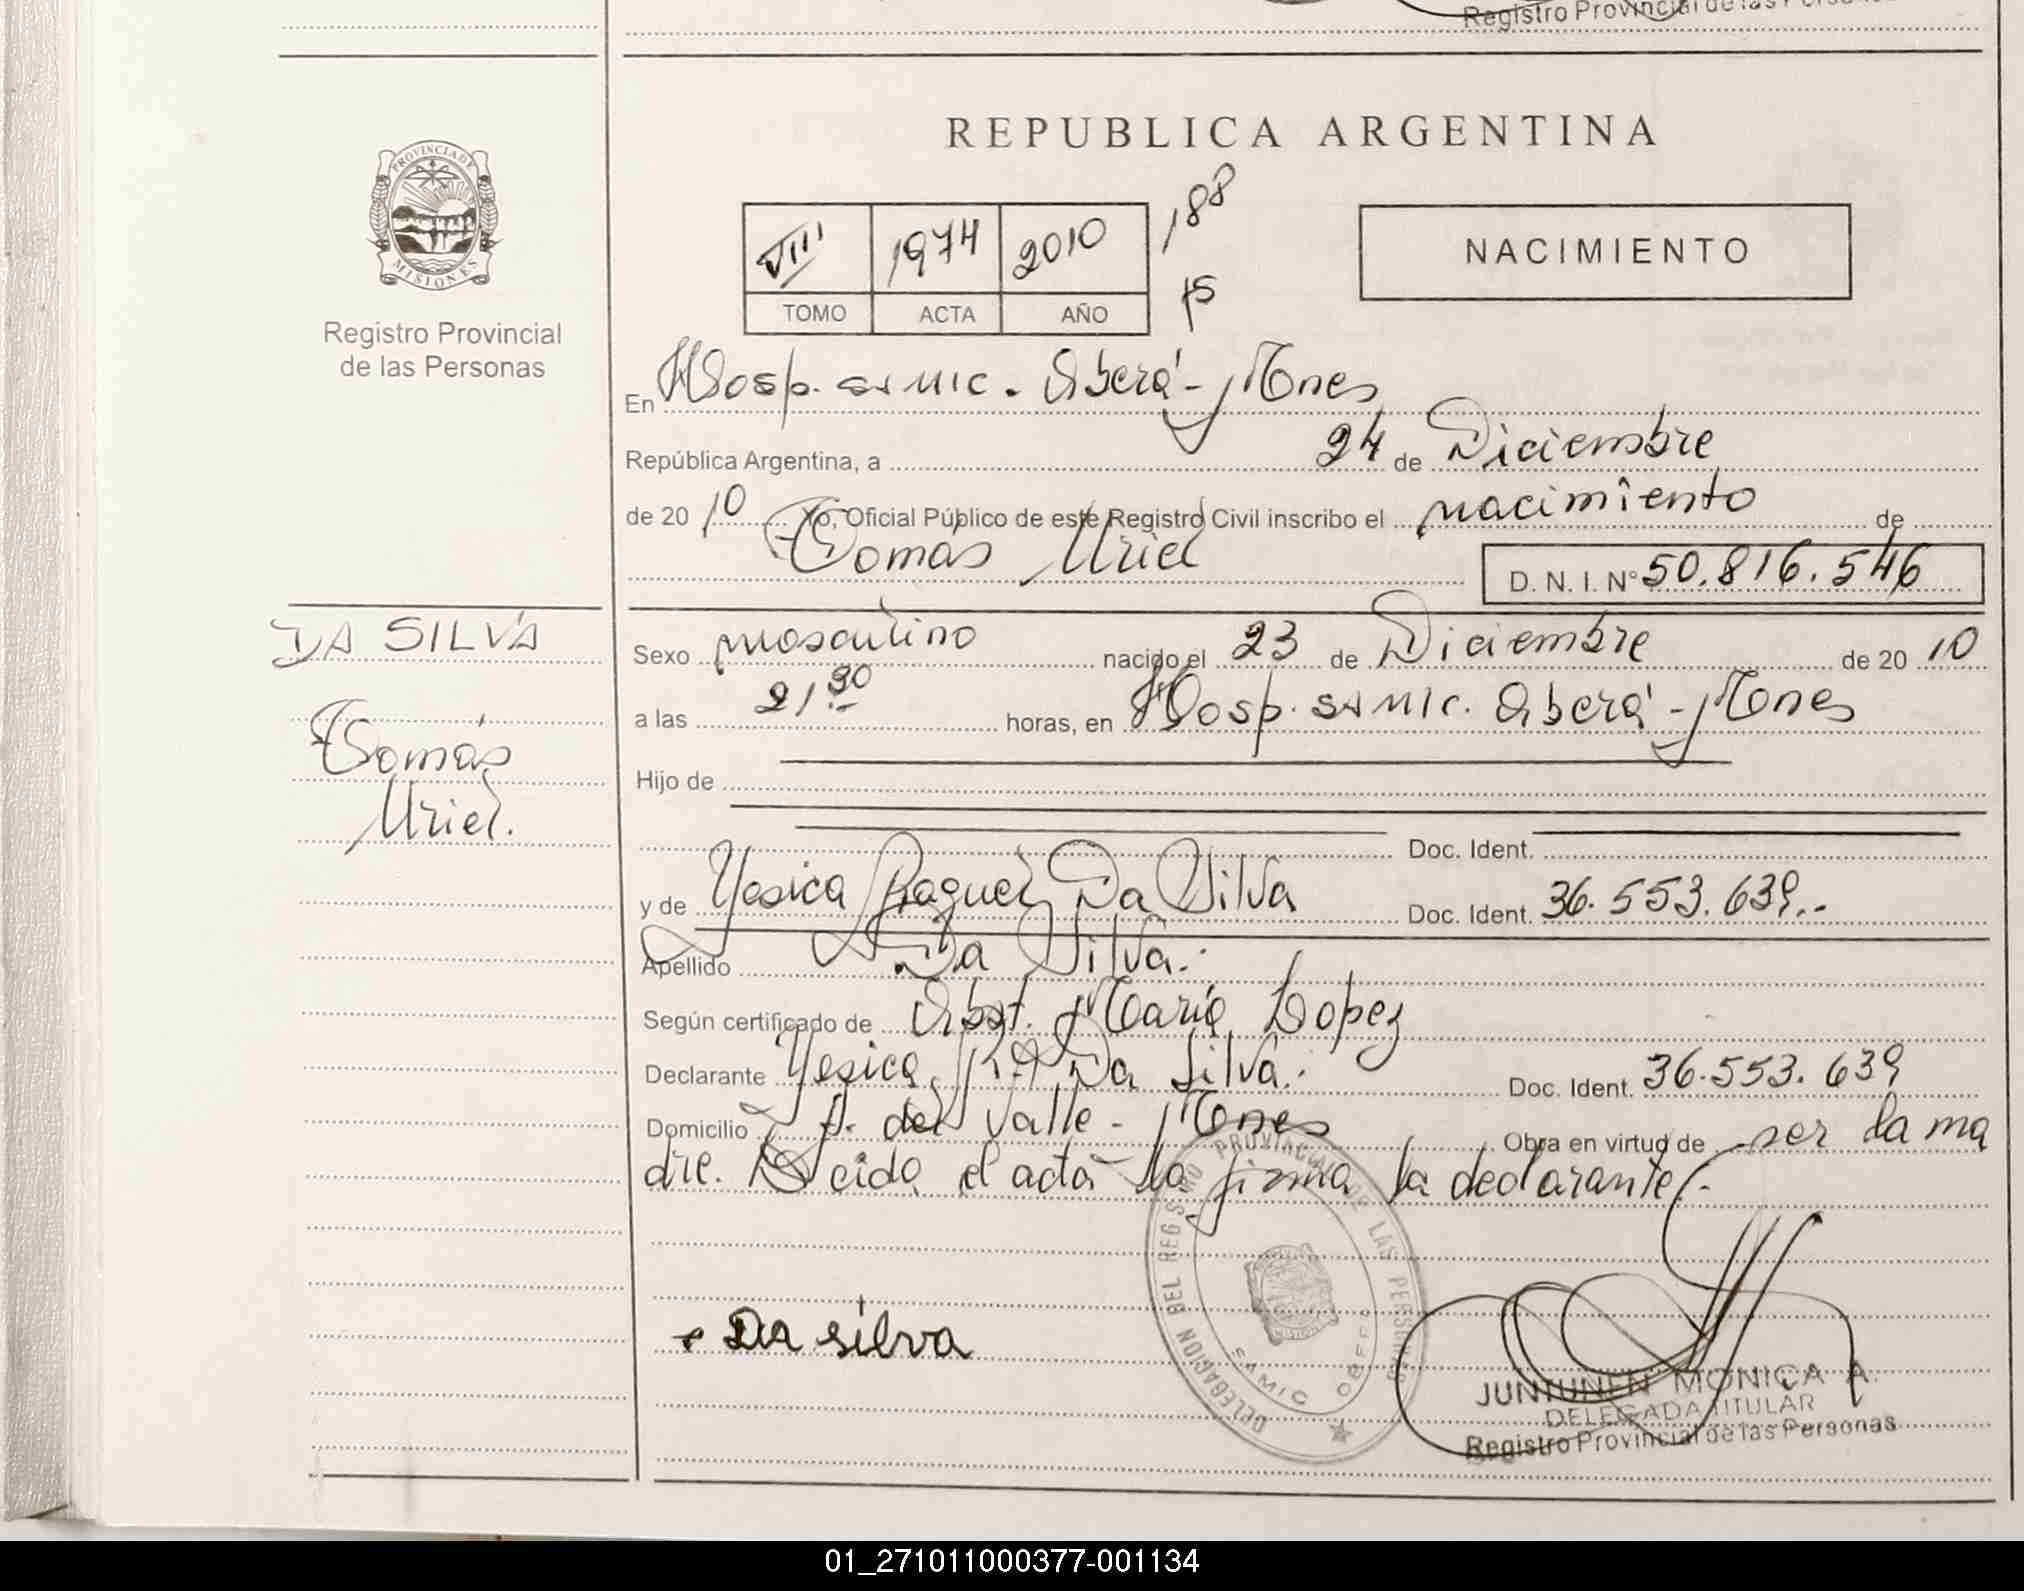 Registro Provincial de las Personas
REPUBLICA ARGENTINA
PROVINCIA DE
MISIONES
Registro Provincial
de las Personas
VIII 1974 2010 188
TOMO ACTA AÑO 15
NACIMIENTO
En Hosp. SAMIC. Oberá - Mnes
República Argentina, a 24 de Diciembre
de 20 10 Yo, Oficial Público de este Registro Civil inscribo el nacimiento de
Tomás Uriel D. N. I. N° 50.816.546
DA SILVA
Tomás
Uriel.
Sexo masculino nacido el 23 de Diciembre de 20 10
a las 21:30 horas, en Hosp. SAMIC. Oberá - Mnes
Hijo de
Doc. Ident.
y de Yesica Raquel Da Silva Doc. Ident. 36.553.639.-
Apellido Da Silva.
Según certificado de Obst. María Lopez
Declarante Yesica R. Da Silva. Doc. Ident. 36.553.639
Domicilio A. del Valle - Mnes Obra en virtud de ser la ma
dre. Leida el acta la firma la declarante.-
Da silva
DELEGACION DEL REGISTRO PROVINCIAL DE LAS PERSONAS
SAMIC OBERA
JUNTUNEN MONICA A.
DELEGADA TITULAR
Registro Provincial de las Personas
01_271011000377-001134